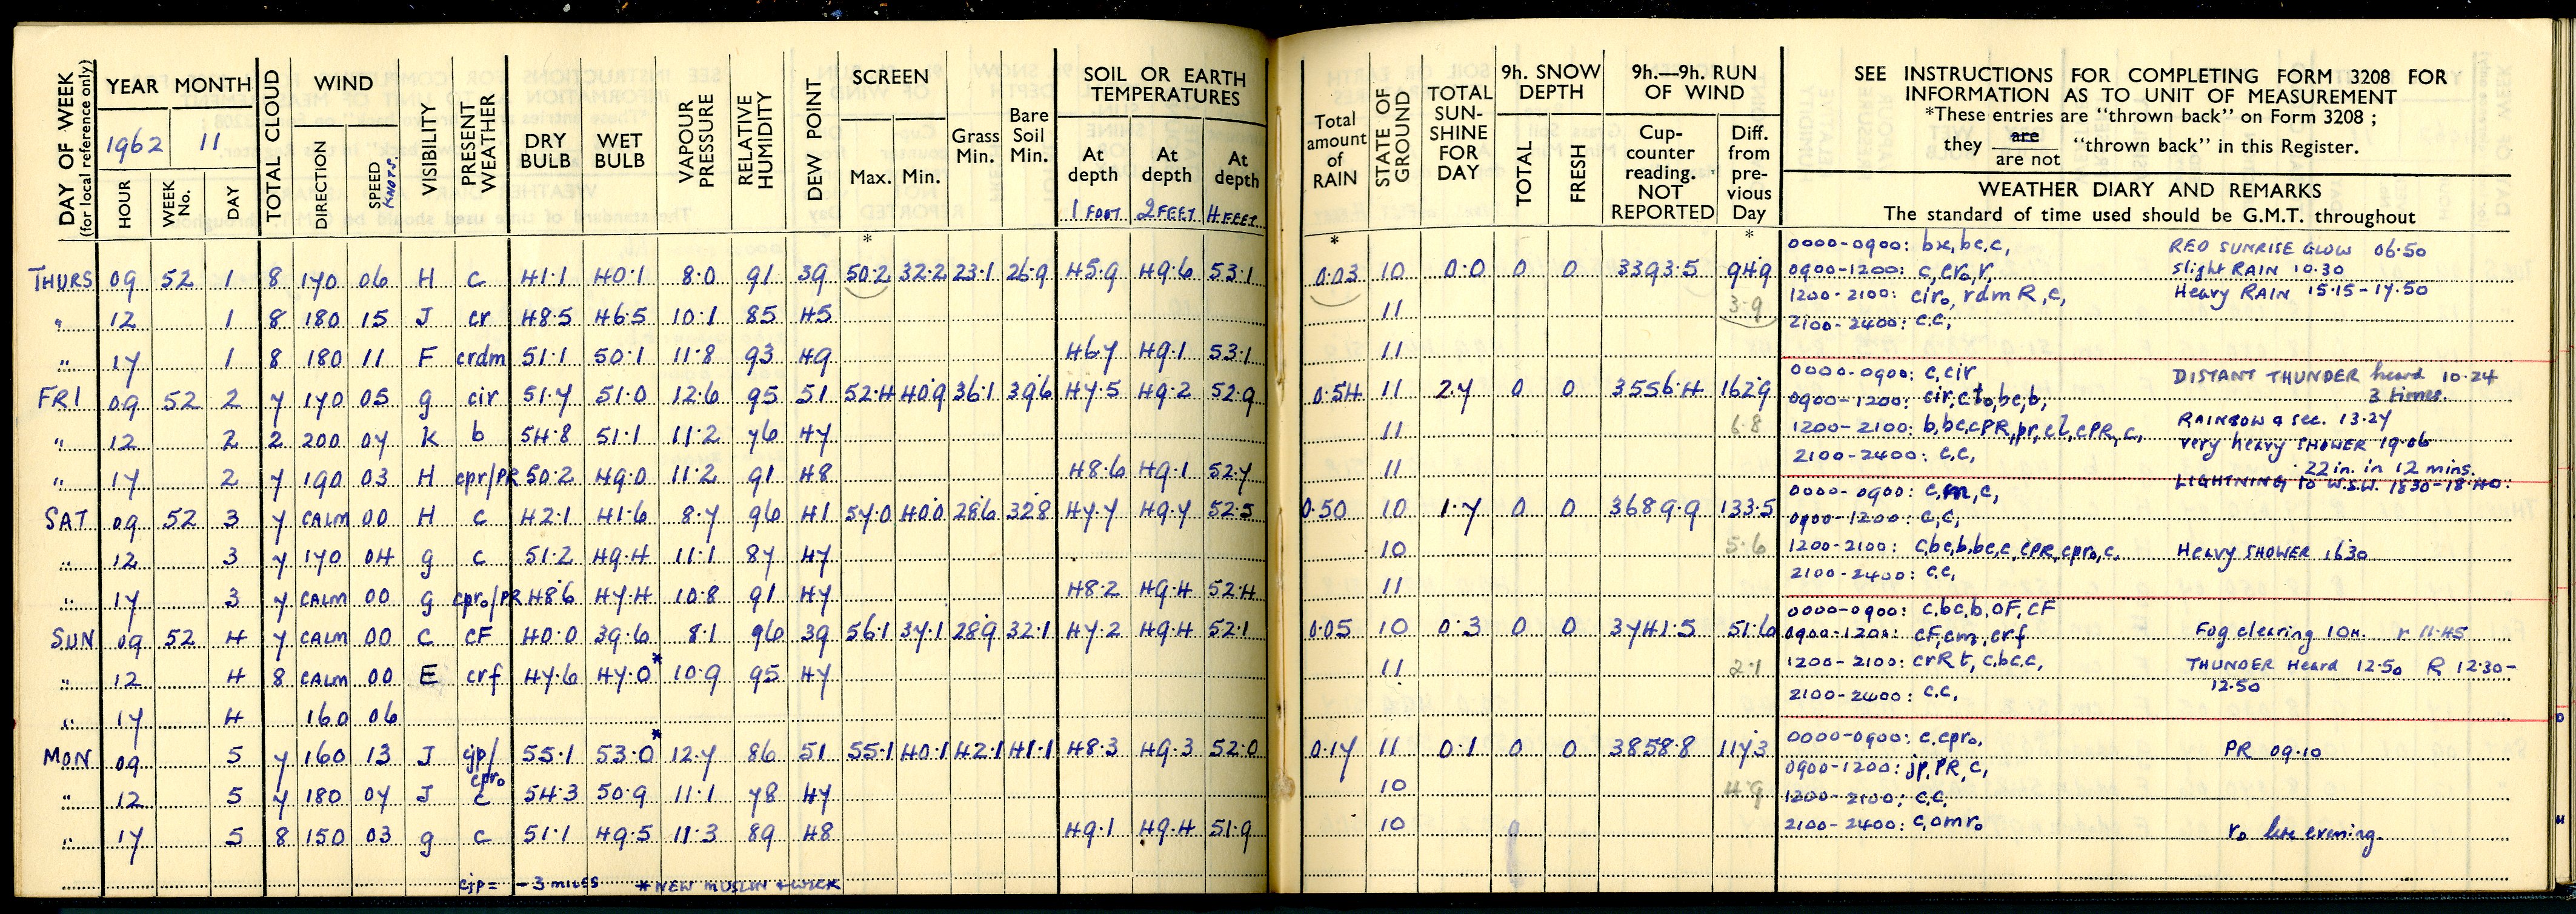 DAY OF WEEK (for local reference only)
YEAR MONTH
1962 11
HOUR WEEK No. DAY
TOTAL CLOUD
WIND
DIRECTION SPEED KNOTS.
VISIBILITY
PRESENT WEATHER
DRY BULB WET BULB
VAPOUR PRESSURE
RELATIVE HUMIDITY
DEW POINT
SCREEN
Max. Min.
*
Grass Min.
Bare Soil Min.
SOIL OR EARTH TEMPERATURES
At depth At depth At depth
1 FOOT 2 FEET 4 FEET
Total amount of RAIN
*
STATE OF GROUND
TOTAL SUN-SHINE FOR DAY
9h. SNOW DEPTH
TOTAL FRESH
9h.—9h. RUN OF WIND
Cup-counter reading. NOT REPORTED
Diff. from pre-vious Day
*
SEE INSTRUCTIONS FOR COMPLETING FORM 3208 FOR
INFORMATION AS TO UNIT OF MEASUREMENT
*These entries are "thrown back" on Form 3208 ;
they are / are not "thrown back" in this Register.
WEATHER DIARY AND REMARKS
The standard of time used should be G.M.T. throughout
THURS 09 52 1 8 170 06 H c 41.1 40.1 8.0 91 39 50.2 32.2 23.1 26.9 45.9 49.6 53.1 0.03 10 0.0 0 0 3393.5 94.9
" 12 1 8 180 15 J cr 48.5 46.5 10.1 85 45 11 3.9
" 17 1 8 180 11 F crdm 51.1 50.1 11.8 93 49 46.7 49.1 53.1 11
0000-0900: bx, bc, c, RED SUNRISE GLOW 06.50
0900-1200: c, cr₀, r, slight RAIN 10.30
1200-2100: cir₀, rdm R, c, Heavy RAIN 15.15-17.50
2100-2400: c.c,
FRI 09 52 2 7 170 05 g cir 51.7 51.0 12.6 95 51 52.4 40.9 36.1 39.6 47.5 49.2 52.9 0.54 11 2.7 0 0 3556.4 162.9
" 12 2 2 200 07 K b 54.8 51.1 11.2 76 47 11 6.8
" 17 2 7 190 03 H cpr/PR 50.2 49.0 11.2 91 48 48.6 49.1 52.7 11
0000-0900: c, cir DISTANT THUNDER heard 10.24
0900-1200: cir, c t₀, bc, b, 3 times.
1200-2100: b, bc, cPR, pr, cl, cPR, c, RAINBOW a sec. 13.27
very heavy SHOWER 19.06
2100-2400: c.c, .22 in. in 12 mins.
LIGHTNING to W.S.W. 1830-18.40.
SAT 09 52 3 7 CALM 00 H c 42.1 41.6 8.7 96 41 57.0 40.0 28.6 32.8 47.7 49.7 52.5 0.50 10 1.7 0 0 3689.9 133.5
" 12 3 7 170 04 g c 51.2 49.4 11.1 87 47 10 5.6
" 17 3 7 CALM 00 g cpr₀/PR 48.6 47.4 10.8 91 47 48.2 49.4 52.4 11
0000-0900: c, m, c,
0900-1200: c, c,
1200-2100: c, bc, b, bc, c, cPR, cpr₀, c. Heavy SHOWER 1630
2100-2400: c.c,
SUN 09 52 4 7 CALM 00 C cF 40.0 39.6 8.1 96 39 56.1 37.1 28.9 32.1 47.2 49.4 52.1 0.05 10 0.3 0 0 3741.5 51.6
" 12 4 8 CALM 00 E crf 47.6 47.0* 10.9 95 47 11 2.1
" 17 4 160 06
0000-0900: c, bc, b, oF, cF
0900-1200: cF, cm, crf Fog clearing 10H. r 11.45
1200-2100: crR t, c, bc, c, THUNDER Heard 12.50 R 12.30-
12.50
2100-2400: c.c,
MON 09 5 7 160 13 J cjp/cpr₀ 55.1 53.0* 12.7 86 51 55.1 40.1 42.1 41.1 48.3 49.3 52.0 0.17 11 0.1 0 0 3858.8 117.3
" 12 5 7 180 07 J c 54.3 50.9 11.1 78 47 10 4.9
" 17 5 8 150 03 g c 51.1 49.5 11.3 89 48 49.1 49.4 51.9 10
0000-0900: c, cpr₀, PR 09.10
0900-1200: jp, PR, c,
1200-2100: c.c,
2100-2400: c, omr₀ r₀ late evening.
cjp = - 3 miles * NEW MUSLIN + WICK